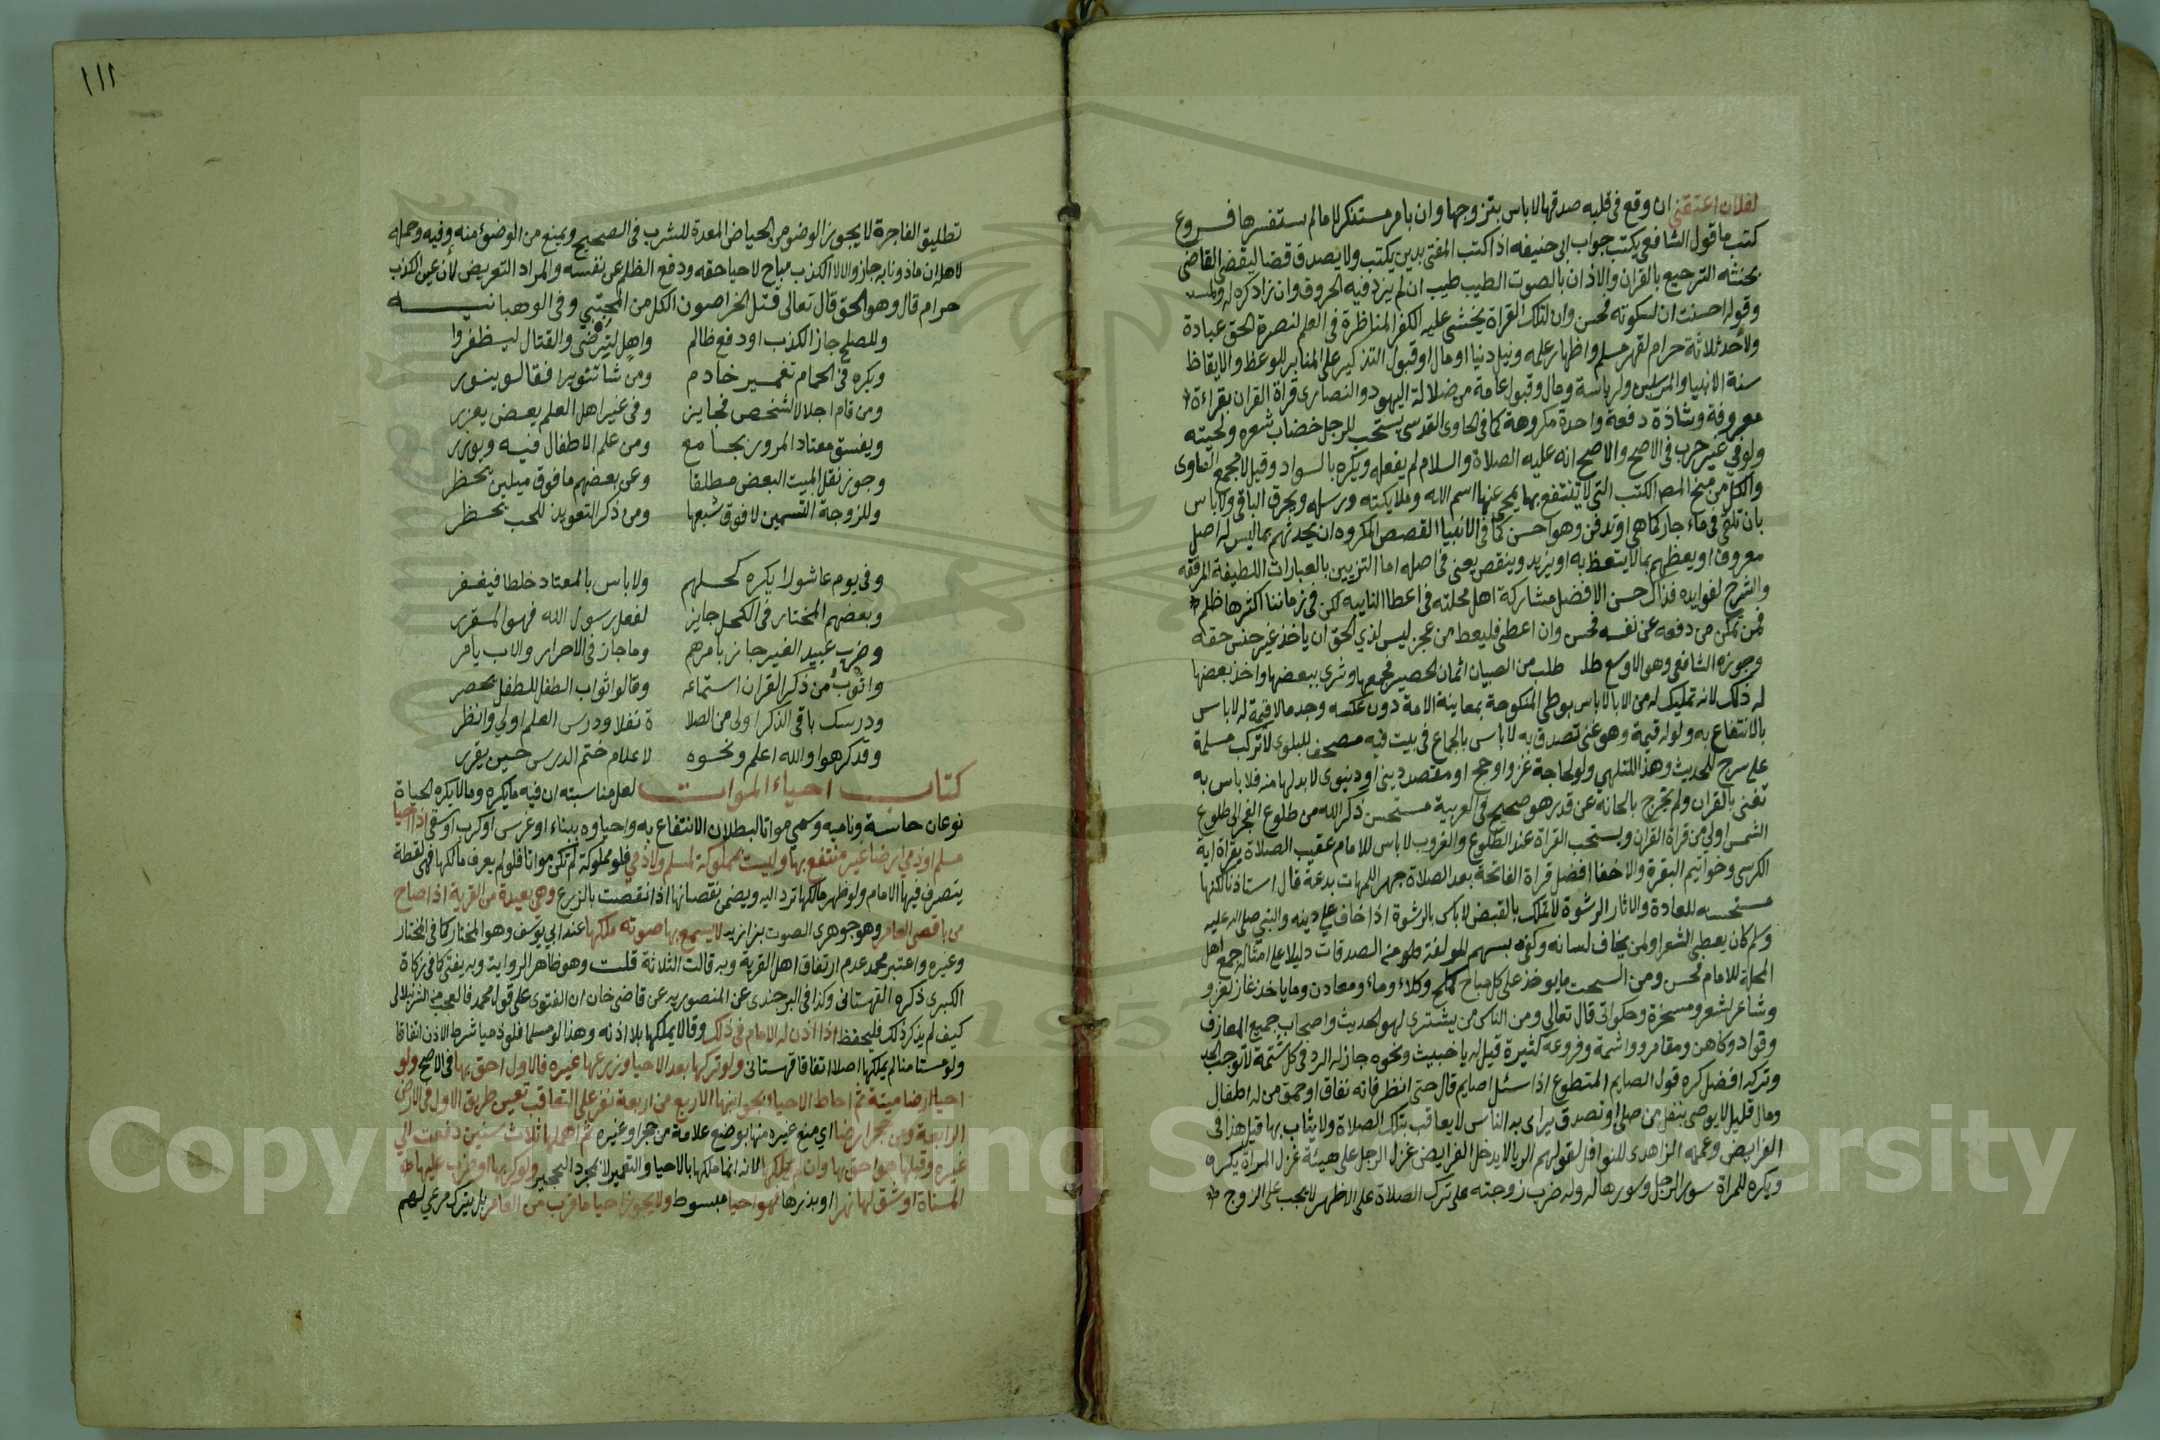 لفلان اعتقني ان وقع في قلبه صدقها لاباس بتزوجها وان بامر مستنكر لا مالم يستفسرها فروع
كتب ما قول الشافعي يكتب جواب ابي حنيفه اذا كتب المفتي بدين يكتب ولا يصدق قضا ليقضي القاضي
بحنثه الترجيع بالقران والاذان بالصوت الطيب طيب ان لم يزد فيه الحروف وان زاد كره له ولمستمعه
وقوله احسنت ان لسكوته فحسن وان لتلك القراة يخشى عليه الكفر المناظرة في العلم لنصرة الحق عبادة
ولاحد ثلاثة حرام لقهر مسلم واظهار علم ونيل دنيا او مال او قبول التذكير على المنابر للوعظ والايقاظ
سنة الانبيا والمرسلين ولرياسة ومال وقبول عامة من ضلالة اليهود والنصارى قراة القران بقراءة
معروفة وشاذة دفعة واحدة مكروهة كما في الحاوى القدسى يستحب للرجل خضاب شعره ولحيته
ولو في غير حرب في الاصح والاصح انه عليه الصلاة والسلام لم يفعله ويكره بالسواد وقيل لا مجمع الفتاوى
والكل من منح المص الكتب التى لا ينتفع بها يمحى عنها اسم الله وملايكته ورسله ويحرق الباقي ولا باس
بان تلقى في ماء جار كما هي او تدفن وهو احسن كما في الانبيا القصص المكروه ان يحدثهم بما ليس له اصل
معروف او يعظهم بما لا يتعظ به او يزيد وينقص يعني في اصله اما التزيين بالعبارات اللطيفة المرققه
والشرح لفوايده فذاك حسن الافضل مشاركة اهل محلته في اعطا النايبه لكن في زماننا اكثرها ظلم
فمن تمكن من دفعه عن نفسه فحسن وان اعطى فليعط من عجز ليس لذي الحق ان ياخذ غير جنس حقه
وجوزه الشافعي وهو الاوسع طلب من الصبيان اثمان الحصير فجمعها وشرى ببعضها واخذ بعضها
له ذلك لانه تمليك له من الابا لاباس بوطي المنكوحة بمعاينة الامة دون عكسه وجد مالا قيمة له لاباس
بالانتفاع به ولو له قيمة وهو غني تصدق به لاباس بالجماع في بيت فيه مصحف للبلوى لا تركب مسلمة
على سرج للحديث وهذا للتلهي ولو لحاجة غزو او حج او مقصد ديني او دنيوى لا بد لها منه فلا باس به
تغنى بالقران ولم يخرج بالحانه عن قدر هو صحيح في العربية مستحسن ذكر الله من طلوع الفجر الى طلوع
الشمس اولى من قراة القران ويستحب القراة عند الطلوع والغروب لاباس للامام عقيب الصلاة بقراة اية
الكرسى وخواتيم البقرة والاخفا افضل قراة الفاتحة بعد الصلاة جهرا للمهمات بدعة قال استاذنا لكنها
مستحسنه للعادة والاثار الرشوة لا تملك بالقبض لاباس بالرشوة اذا خاف على دينه والنبي صلى الله عليه
وسلم كان يعطى الشعرا ولمن يخاف لسانه وكفى بسهم المولفة قلوبهم الصدقات دليلا على امثاله جمع اهل
المحلة للامام فحسن ومن السحت مايوخذ على كل مباح كملح وكلاء وماء ومعادن وما ياخذه غاز لغزو
وشاعر لشعر ومسخرة وحكواتى قال تعالى ومن الناس من يشترى لهو الحديث واصحاب جميع المعازف
وقواد وكاهن ومقامر وواشمة وفروعه كثيرة قيل له يا خبيث ونحوه جاز له الرد في كل شتمة لا توجب الحد
وتركه افضل كره قول الصايم المتطوع اذا سئل اصايم قال حتى انظر فانه نفاق او حمق من له اطفال
ومال قليل لا يوصى بنفل من صلى او تصدق يراى به الناس لا يعاقب بتلك الصلاة ولا يثاب بها قيل هذا في
الفرايض وعممه الزاهدى للنوافل لقولهم الريا لا يدخل الفرايض غزل الرجل على هيئة غزل المراة يكره
ويكره للمراة سور الرجل وسورها له وله ضرب زوجته على ترك الصلاة على الاظهر لا يجب على الزوج
١١١
تطليق الفاجرة لا يجوز الوضو من الحياض المعدة للشرب في الصحيح ويمنع من الوضوء منه وفيه وحمله
لاهله ان ماذونا به جاز والالا الكذب مباح لاحيا حقه ودفع الظلم عن نفسه والمراد التعريض لان عين الكذب
حرام قال وهو الحق قال تعالى قتل الخراصون الكل من المجتبي وفي الوهبانيه
وللصلح جاز الكذب او دفع ظالم واهل لترضى والقتال ليظفروا
ويكره في الحمام تغمير خادم ومن شا تنويرا فقالو ينور
ومن قام اجلالا لشخص فجايز وفي غير اهل العلم بعض يعزر
ويفسق معتاد المرور بجامع ومن علم الاطفال فيه ويوزر
وجوز نقل الميت البعض مطلقا وعن بعضهم ما فوق ميلين يحظر
وللزوجة التسمين لا فوق شبعها ومن ذكر التعويذ للحب يحظر
وفي يوم عاشورا يكره كحلهم ولا باس بالمعتاد خلطا فيغفر
وبعضهم المختار في الكحل جايز لفعل رسول الله فهو المقرر
وضرب عبيد الغير جاز بامرهم وما جاز في الاحرار والاب يامر
واثوب من ذكر القران استماعه وقالوا ثواب الطفل للطفل يحصر
ودرسك باقى الذكر اولى من الصلا ة نفلا ودرس العلم اولى وانظر
وقد كرهوا والله اعلم ونحوه لاعلام ختم الدرس حين يقرر
كتاب احياء الموات لعل مناسبته ان فيه مايكره ومالايكره الحياة
نوعان حاسة ونامية وسمي مواتا لبطلان الانتفاع به واحياوه ببناء او غرس او كرب او سقي اذا احيا
مسلم او ذمي ارضا غير منتفع بها وليست بمملوكة لمسلم ولا ذمي فلو مملوكة لم تكن مواتا فلو لم يعرف مالكها فهي لقطة
يتصرف فيها الامام ولو ظهر مالكها ترد اليه ويضمن نقصانها اذا نقصت بالزرع وهي بعيدة من القرية اذا صاح
من باقصى العامر وهو جوهرى الصوت بزازيه لا يسمع بها صوته ملكها عند ابي يوسف وهو المختار كما في المختار
وغيره واعتبر محمد عدم ارتفاق اهل القرية وبه قالت الثلاثة قلت وهو ظاهر الرواية وبه يفتى كما في زكاة
الكبرى ذكره القهستانى وكذا في البرجندى عن المنصوريه عن قاضى خان ان الفتوى على قول محمد فالعجب من الشرنبلالى
كيف لم يذكر ذلك فليحفظ اذا اذن له الامام في ذلك وقالا يملكها بلا اذنه وهذا لو مسلما فلو ذميا شرط الاذن اتفاقا
ولو مستامنا لم يملكها اصلا اتفاقا قهستانى ولو تركها بعد الاحيا وزرعها غيره فالاول احق بها في الاصح ولو
احيا ارضا ميتة ثم احاط الاحياء بجوانبها الاربع من اربعة نفر على التعاقب تعين طريق الاول في الارض
الرابعة ومن حجر ارضا اي منع غيره منها بوضع علامة من حجر او غيره ثم اهملها ثلاث سنين دفعت الى
غيره وقبلها هو احق بها وان لم يملكها لانه انما ملكها بالاحيا والتعمير لا بمجرد التحجير ولو كربها او ضرب عليها
المسناة او شق لها نهرا او بذرها فهو احيا مبسوط ولا يجوز احيا ما قرب من العامر بل يترك مرعى لهم
Copyright © King Saud University
1957